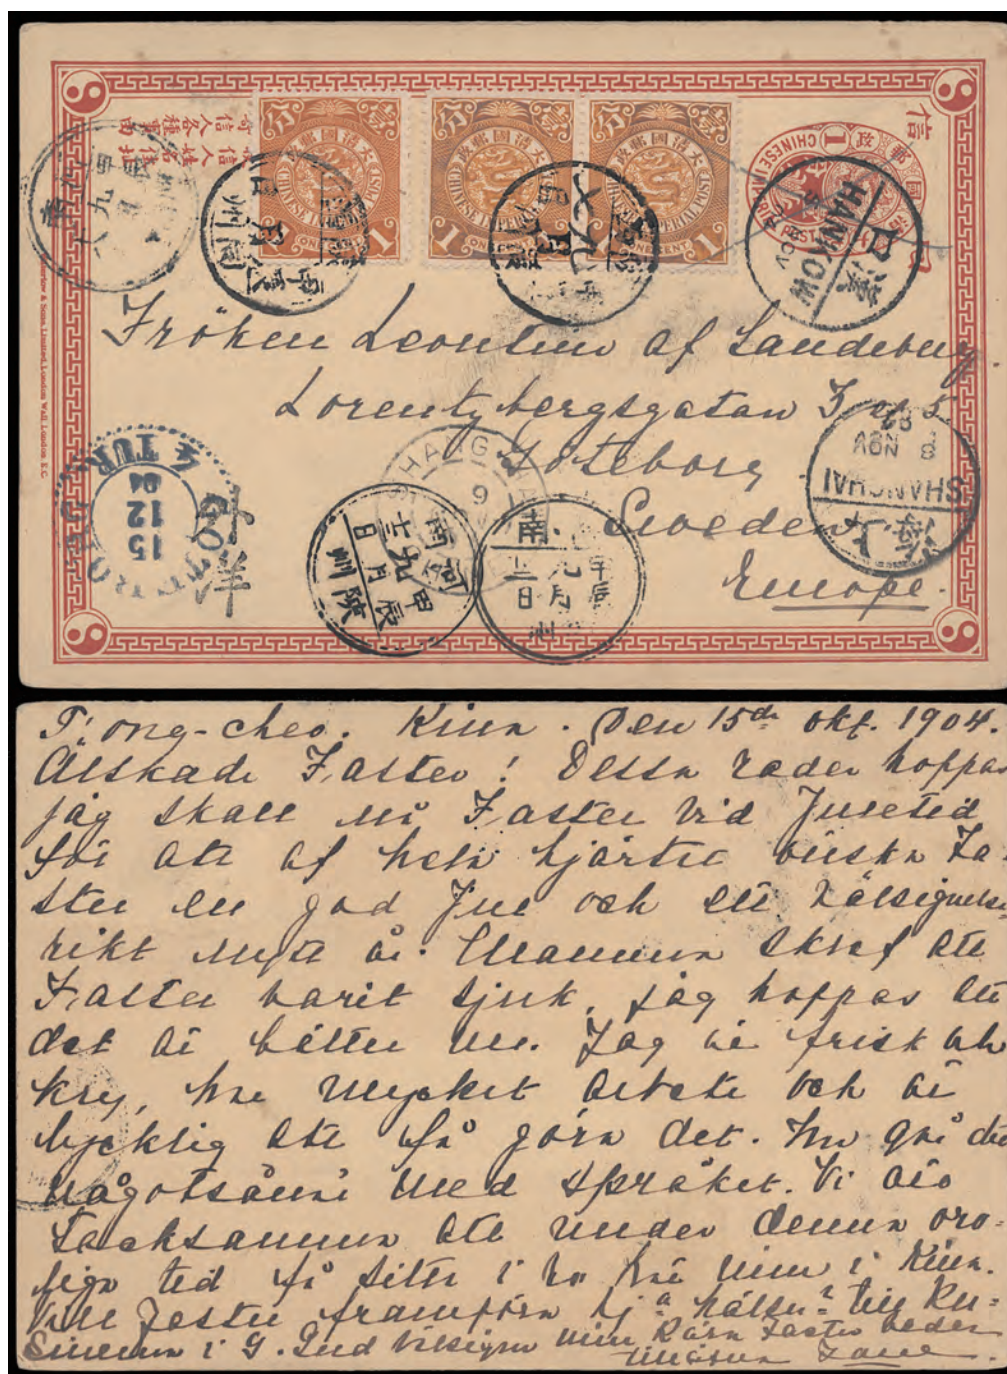 HANKOW
漢口
NOV
SHANGHAI
8 NOV
上海
CHINESE IMPERIAL POST
1 ONE CENT 1
CHINESE IMPERIAL POST
1 ONE CENT
CHINESE IMPERIAL POST
ONE CENT 1
Fröken Leontine af Sandeberg.
Lorentzbergsgatan
Göteborg
Sweden
Europe.
GÖTEBORG
4 TUR
15
12
04
河南
甲辰
九月
十三日
陝州
南
九月
Kina. Den 15de okt. 1904.
Älskade Faster! Dessa rader hoppas
jag skall nå Faster vid Juletid
för att af hela hjärtat önska Fa-
ster en god Jul och ett välsignelse-
rikt nytt år. Mamma skref att
Faster varit sjuk, jag hoppas att
det är bättre nu. Jag är frisk och
kry, har mycket arbete och är
lycklig att få göra det. Nu går det
någotsånär med språket. Vi äro
tacksamma att under denna oro-
liga tid få sitta i ro här inne i Kina.
Vill Faster framföra hälsn. till Ku-
sinerna i G. Gud välsigne min kära Faster beder